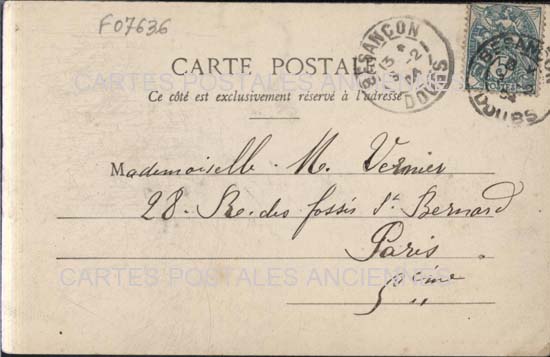 F07636
CARTE POSTALE
Ce côté est exclusivement réservé à l'adresse
BESANÇON
DOUBS
BESANÇON
DOUBS
CARTES POSTALES ANCIENNES
Mademoiselle M. Vernier
28. R. des fossés St Bernard
Paris
Seine
CARTES POSTALES ANCIENNES